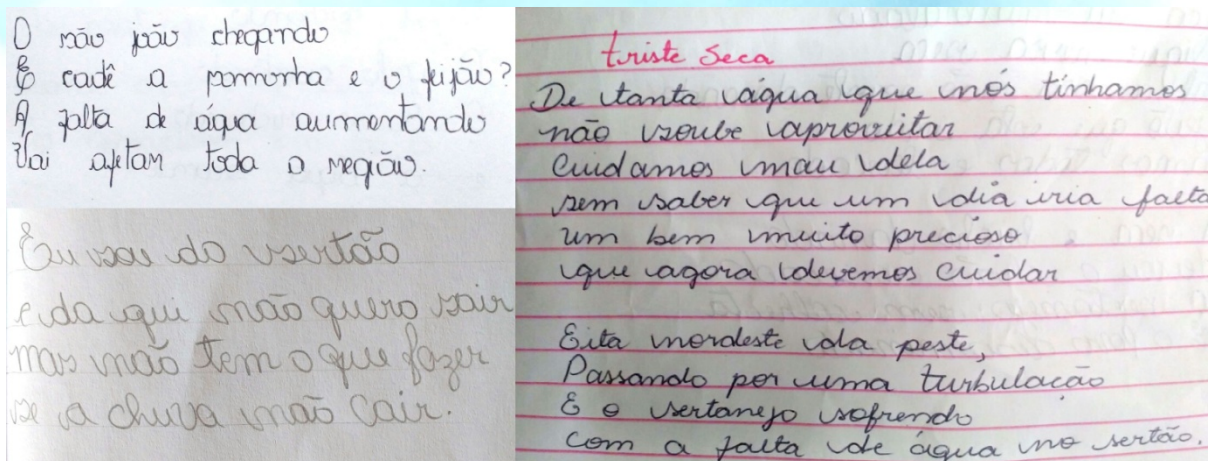 O são joão chegando
E cadê a pamonha e o feijão?
A falta de água aumentando
Vai afetar toda a região.
Eu sou do sertão
e da qui não quero sair
mas não tem o que fazer
se a chuva não cair.
triste seca
De tanta água que nós tínhamos
não soube aproveitar
Cuidamos mau dela
sem saber que um dia iria falta
um bem muito precioso
que agora devemos cuidar
Eita nordeste da peste,
Passando por uma turbulação
E o sertanejo sofrendo
com a falta de água no sertão.